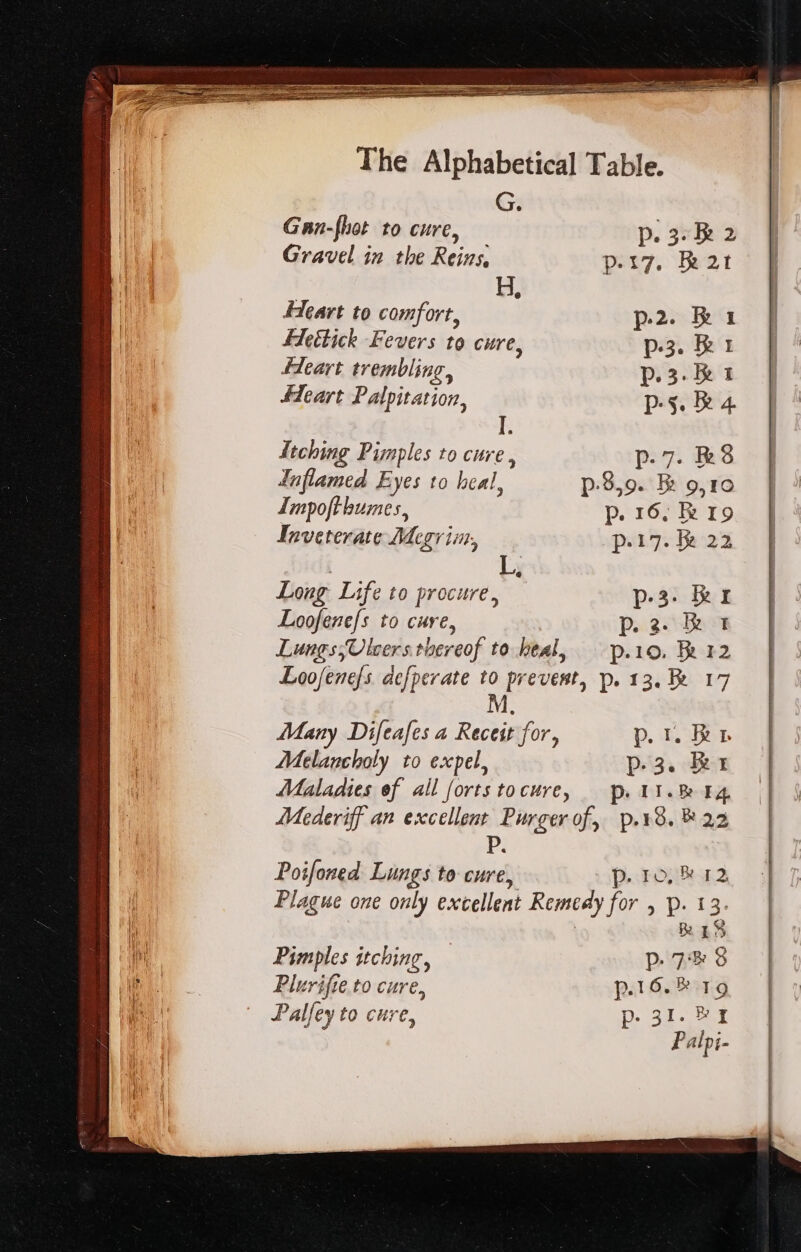 The Alphabetical Table.
G.
Gun-ſhot to cure, p. 3. ℞ 2
Gravel in the Reins, p.17. ℞ 21
H,
Heart to comfort, p.2. ℞ 1
Hectick Fevers to cure, p.3. ℞ 1
Heart trembling, p. 3. ℞ 1
Heart Palpitation, p.5. ℞ 4
I.
Itching Pimples to cure, p. 7. ℞ 8
Inflamed Eyes to heal, p.8,9. ℞ 9,10
Impoſthumes, p. 16, ℞ 19
Inveterate Megrim, p.17. ℞ 22
L,
Long Life to procure, p.3. ℞ 1
Looſeneſs to cure, p. 3. ℞ 1
Lungs, Ulcers thereof to heal, p.10. ℞ 12
Looſeneſs deſperate to prevent, p. 13. ℞ 17
M.
Many Diſeaſes a Receit for, p. 1. ℞ 1
Melancholy to expel, p.3. ℞ 1
Maladies of all ſorts to cure, p. 11. ℞ 14
Mederiff an excellent Purger of, p.18. ℞ 22
P.
Poiſoned Lungs to cure, p. 10, ℞ 12
Plague one only excellent Remedy for , p. 13.
℞ 18
Pimples itching, p. 7 ℞ 8
Pluriſie to cure, p.16. ℞ 19
Palſey to cure, p. 31. ℞ 1
Palpi-